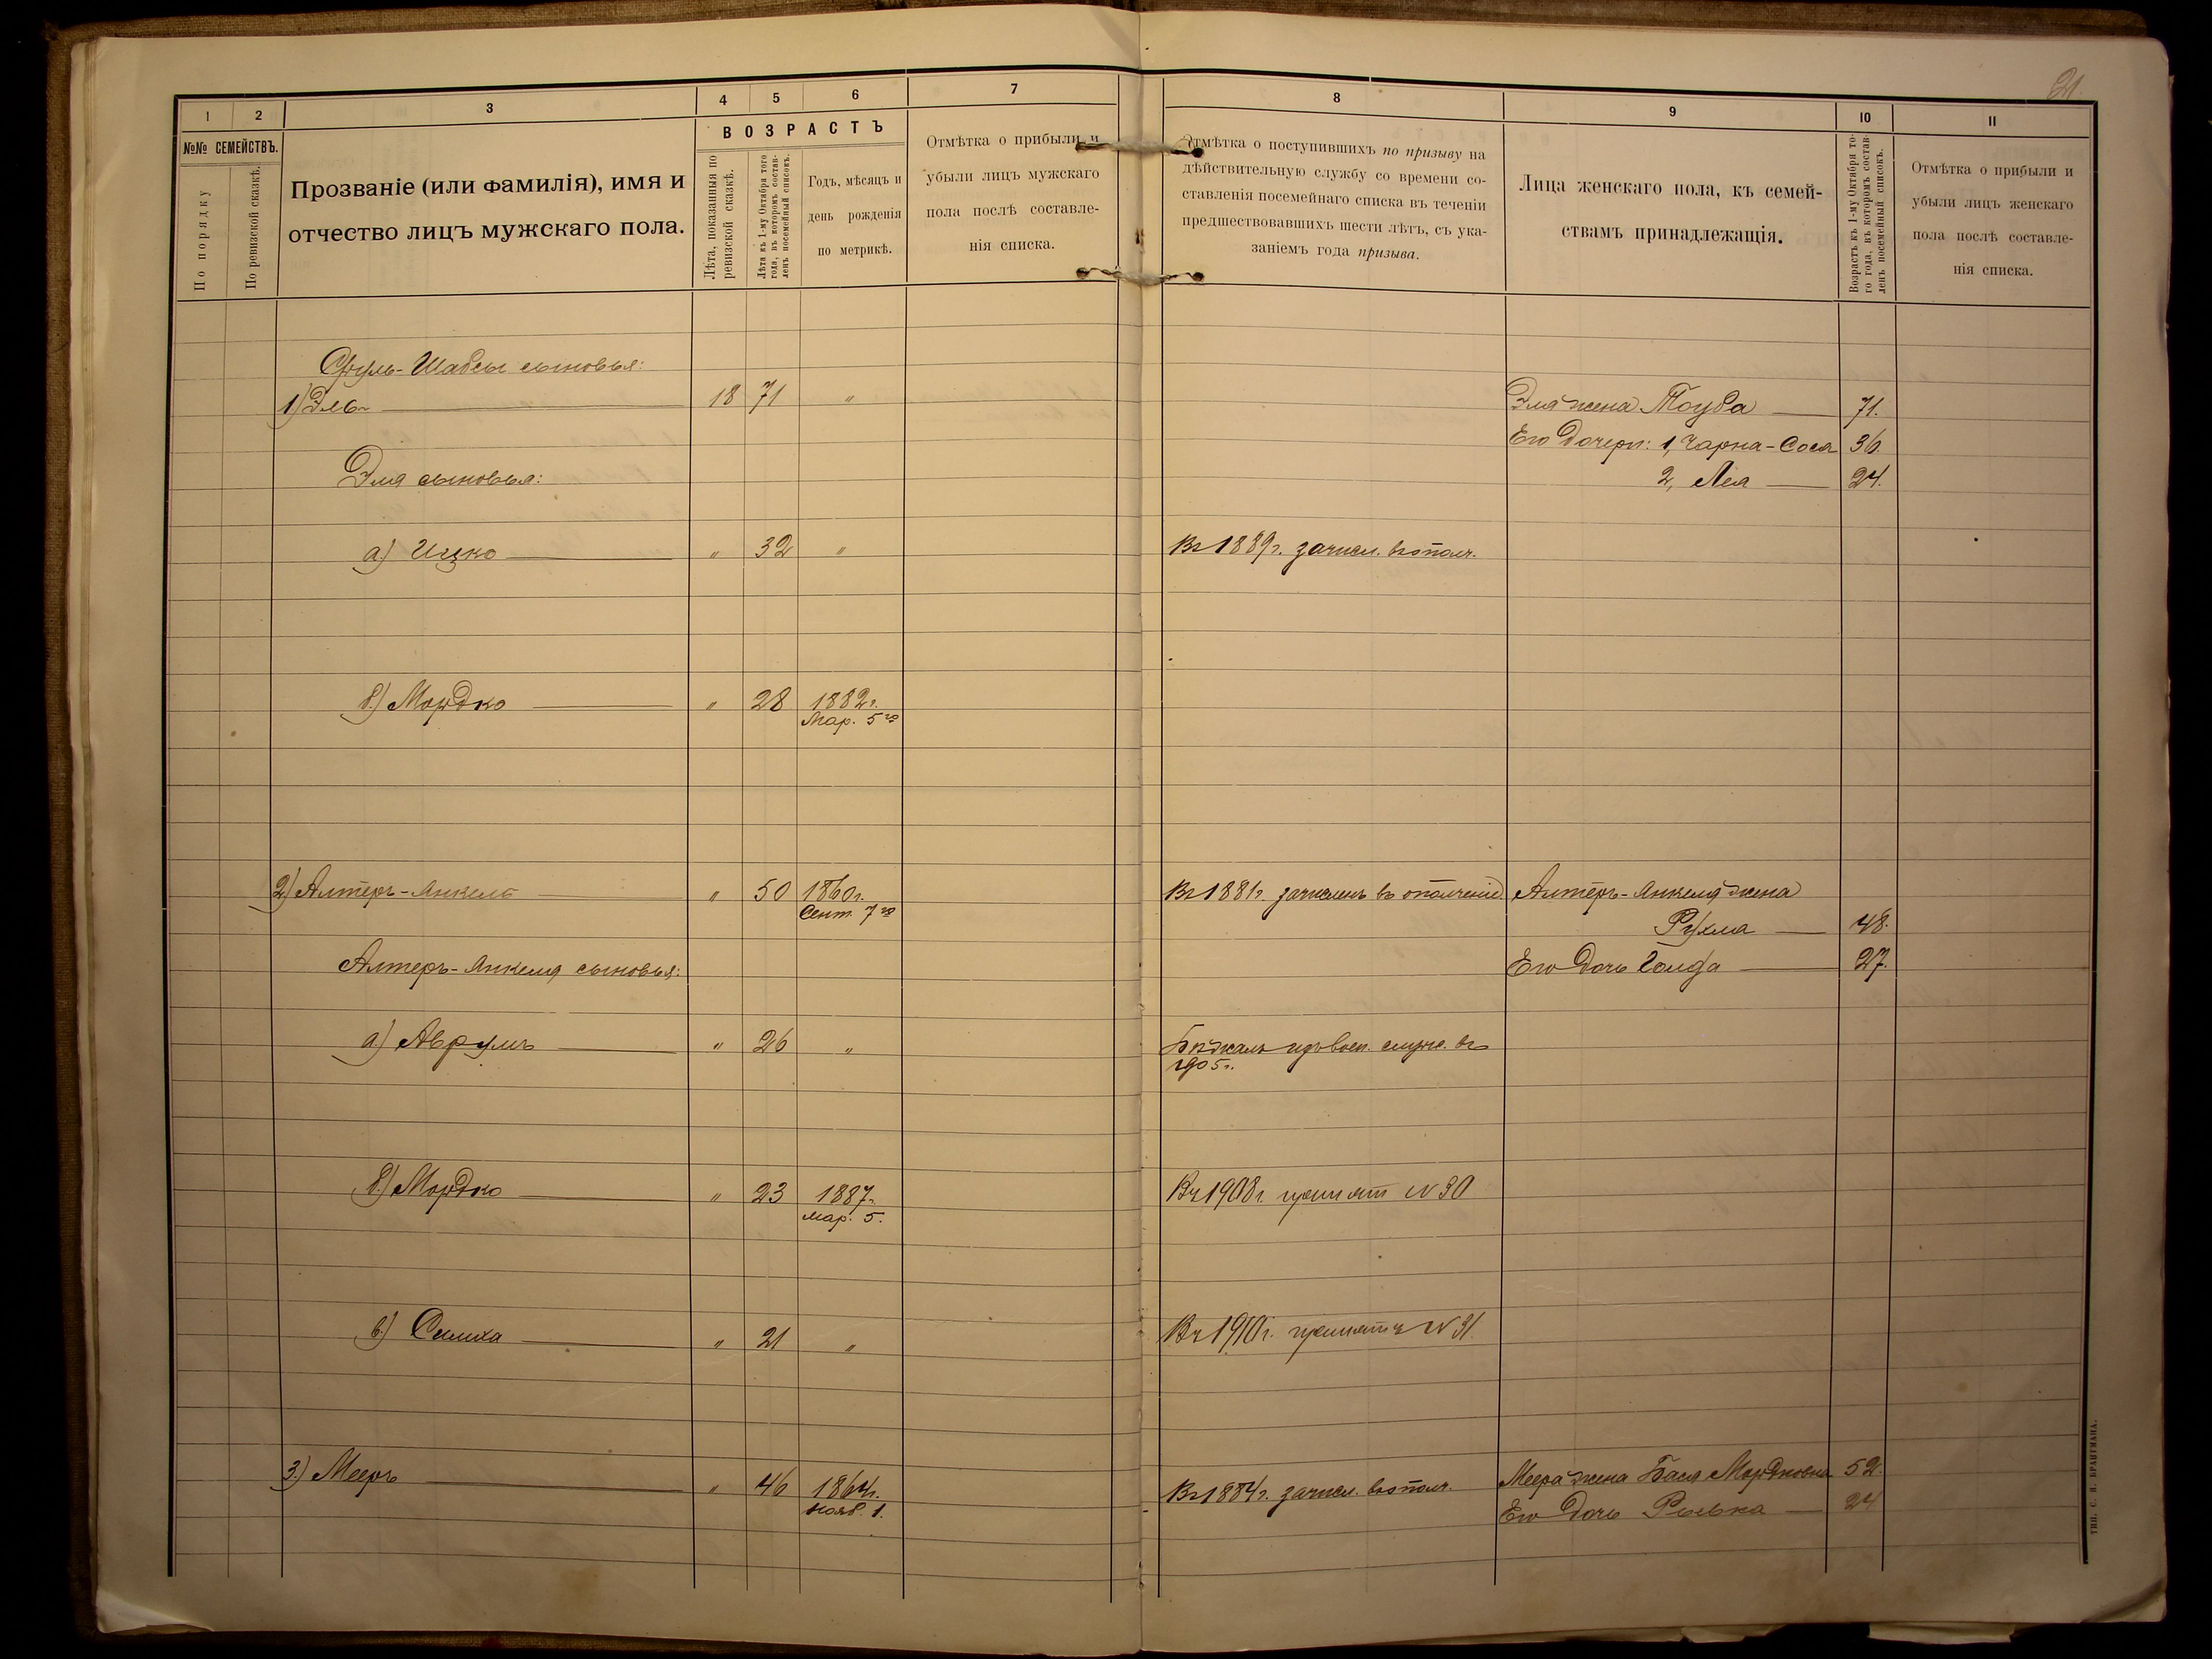 21
1 2 3 4 5 6 7 8 9 10 11
№№ СЕМЕЙСТВЪ.
По порядку
По ревизской сказкѣ.
Прозваніе (или фамилія), имя и
отчество лицъ мужскаго пола.
ВОЗРАСТЪ
Лѣта, показанныя по
ревизской сказкѣ.
Лѣта къ 1-му Октября того
года, въ которомъ состав-
ленъ посемейный списокъ.
Годъ, мѣсяцъ и
день рожденія
по метрикѣ.
Отмѣтка о прибыли и
убыли лицъ мужскаго
пола послѣ составле-
нія списка.
Отмѣтка о поступившихъ по призыву на
дѣйствительную службу со времени со-
ставленія посемейнаго списка въ теченіи
предшествовавшихъ шести лѣтъ, съ ука-
заніемъ года призыва.
Лица женскаго пола, къ семей-
ствамъ принадлежащія.
Возрастъ къ 1-му Октября то-
го года, въ которомъ состав-
ленъ посемейный списокъ.
Отмѣтка о прибыли и
убыли лицъ женскаго
пола послѣ составле-
нія списка.
Шабсы сыновья:
1) Эль 18 71 " Эля жена Тоуба 71.
Его дочери: 1, Чарна-Сося 36.
Эля сыновья: 2, Лея 24.
а) Ицко " 32 " Въ 1889г. зачисл. въ ополч.
б) Мордко " 28 1882г.
Мар. 5го
2) Алтеръ-Янкель " 50 1860г. Въ 1881г. зачисленъ въ ополченіе. Алтеръ-Янкеля жена
Сент. 7го Рухля 48.
Алтеръ-Янкеля сыновья: Его дочь Голда 27.
а) Аврумъ " 26 " Бѣжалъ изъ воен. служ. въ
1905г.
б) Мордко " 23 1887г. Въ 1908г. принят N 30
мар. 5.
в) Симха " 21 " Въ 1910г. принятъ N 31.
3.) Мееръ " 46 1864г. Въ 1884г. зачисл. въ ополч. Меера жена Бася Мордковна 52.
Нояб. 1. Его дочь Рывка 24
ТИП. С. И. БРАНТМАНА.